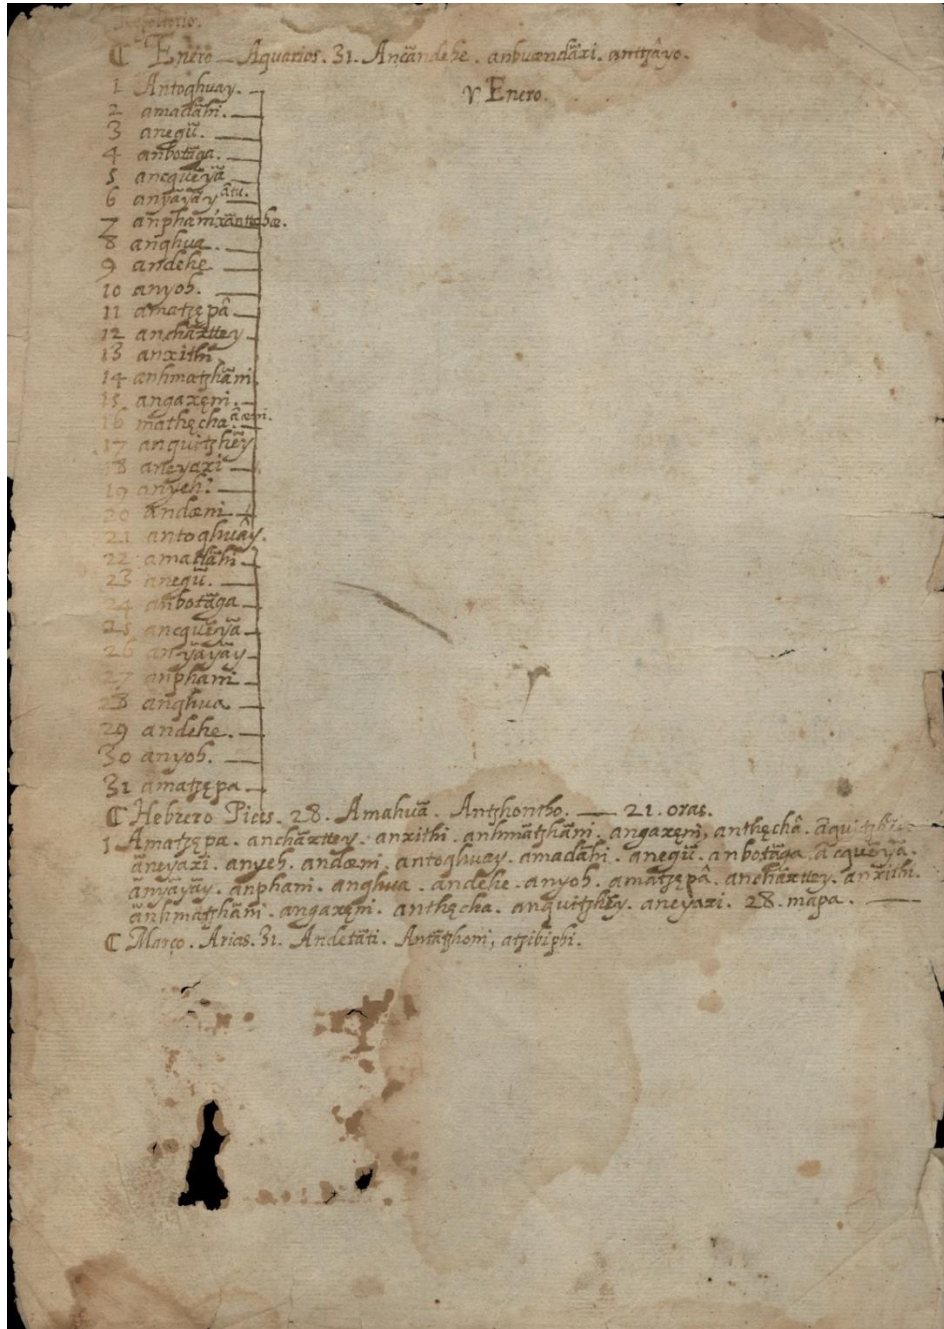 Repoltorio.
₵ Enero — Aquarios. 31. Ancãndehe. anbuændãxi. antzâyo.
1 Antoghuay. —
2 amadãhi. —
3 anegü. —
4 anbotãga. —
5 ancquẽyã —
6 anyãyãy âtu.
7 anphani xãnttæhæ.
8 anghua. —
9 andehe —
10 anyoh. —
11 amatzępâ —
12 anchãxttey —
13 anxithi
14 anhmatzhãni
15 angaxęni. —
16 mathęcha âæni.
17 anquitzhẽy
18 aneyaxi —
19 anyeh. —
20 andæni —
21 antoghuây.
22 amadãhi —
23 anegü. —
24 anbotãga —
25 ancquẽyã —
26 anyãyãy —
27 anphani —
28 anghua —
29 andehe. —
30 anyoh. —
31 amatzępa —
r Enero.
₵ Hebrero Picis. 28. Amahuã. Antzhontho. — 21. oras.
1 Amatzępa. anchãxttey. anxithi. anhmatzhãni. angaxęni, anthęchâ.
aneyaxi. anyeh. andæni. antoghuay. amadãhi. anegü. anbotãga. ãcquẽyã.
anyãyãy. anphani. anghua. andehe. anyoh. amatzępâ. anchãxttey. anxithi.
anhmatzhãni. angaxęni. anthęcha. anquitzhẽy. aneyaxi. 28. mapa. —
₵ Março. Arias. 31. Andetãti. Antãtzhoni, atzibiphi.